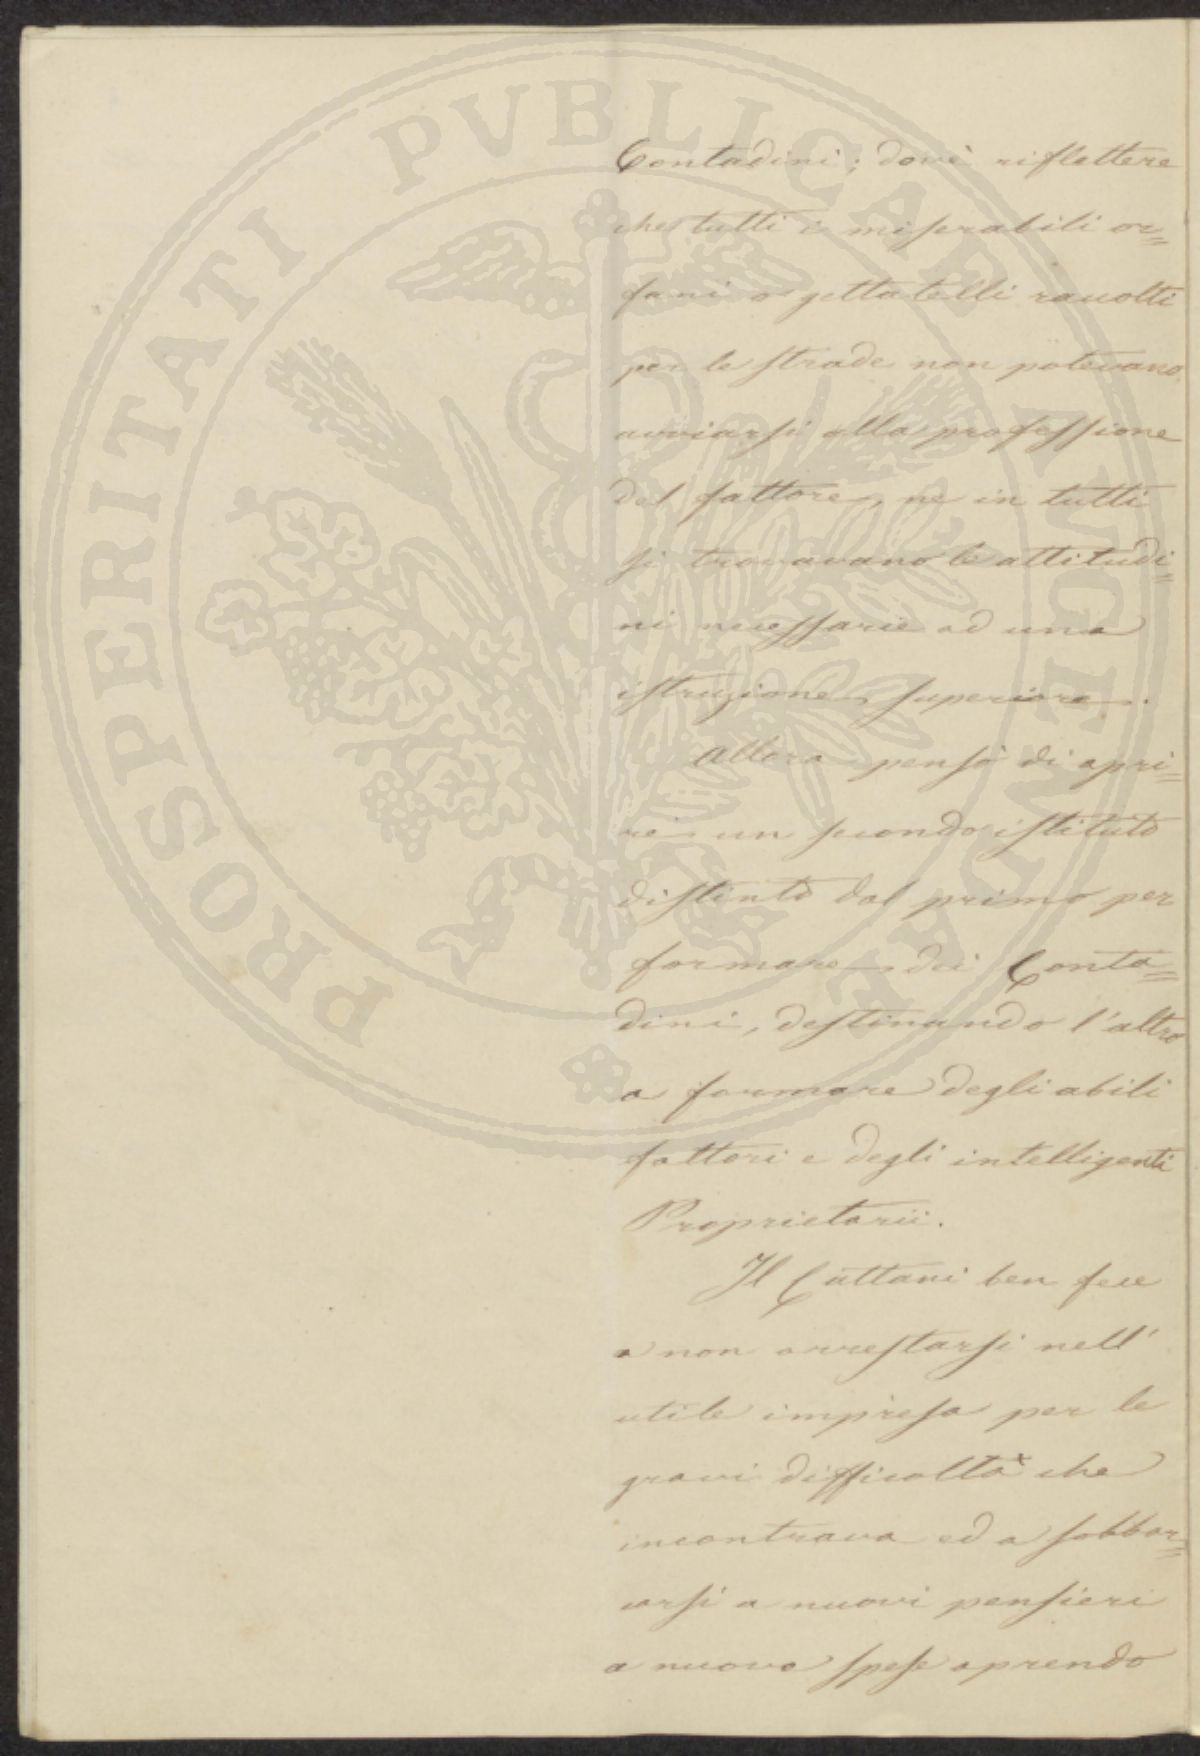 PROSPERITATI PVBLICAE AVGENDAE
Contadini; dovè riflettere
che tutti i miserabili or=
fani o gettatelli raccolti
per le strade non potevano
avviarsi alla professione
del fattore, ne in tutti
si trovavano le attitudi=
ni necessarie ad una
istruzione superiore.
Allora pensò di apri=
re un secondo istituto
distinto dal primo per
formare dei Conta=
dini, destinando l'altro
a formare degli abili
fattori e degli intelligenti
Proprietarii.
Il Cuttani ben fece
a non arrestarsi nell'
utile impresa per le
gravi difficoltà che
incontrava ed a sobbar=
carsi a nuovi pensieri
a nuove spese aprendo